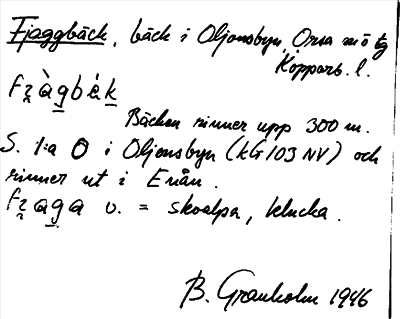 Fjaggbäck, bäck i Oljonsbyn, Orsa sn ö tg
Kopparb. l.
Bäcken rinner upp 300 m.
S. 1:a O i Oljonsbyn (kG 109 NV) och
rinner ut i Enån.
v. = skvalpa, klucka.
B. Granholm 1946